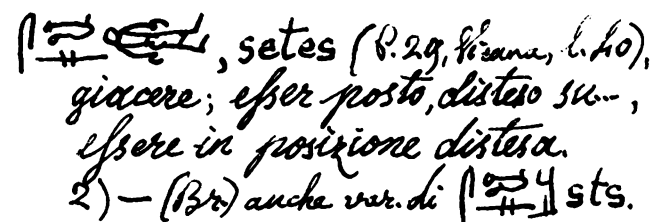 , setes (P. 29, Vienna, l. 40),
giacere; esser posto, disteso su...,
essere in posizione distesa.
2) — (Br.) anche var. di sts.